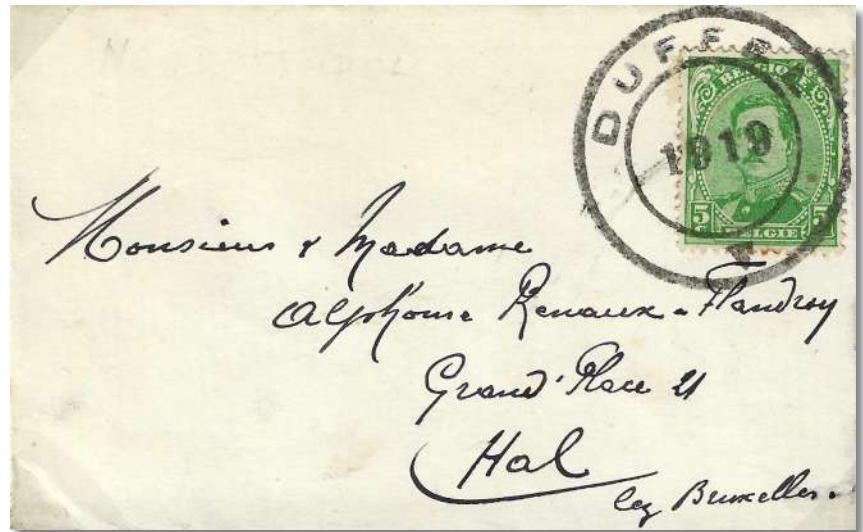 DUFFEL
1919
BELGIQUE
5 5
BELGIE
Monsieur & Madame
Alphonse Renaux-Flandroy
Grand'Place 21
Hal
lez Bruxelles.